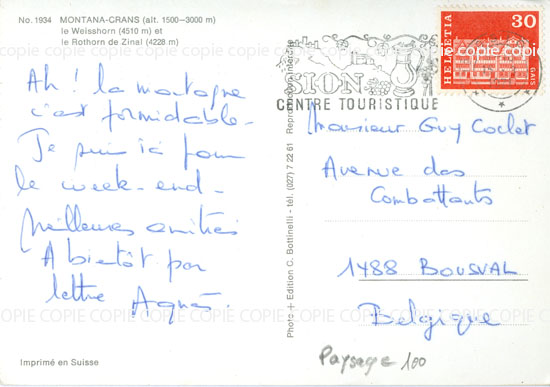 No. 1934 MONTANA-CRANS (alt. 1500–3000 m)
le Weisshorn (4510 m) et
le Rothorn de Zinal (4228 m)
Ah ! la montagne
c'est formidable -
Je suis ici pour
le week-end -
meilleures amitiés
A bientôt par
lettre Agnès.
Imprimé en Suisse
Photo + Edition C. Bottinelli - tél. (027) 7 22 61 Reproduction interdite
SION
CENTRE TOURISTIQUE
HELVETIA
30
GAIS
Monsieur Guy Coclet
Avenue des
Combattants
1488 BOUSVAL
Belgique
Paysage 100
COPIE COPIE COPIE COPIE COPIE COPIE COPIE COPIE